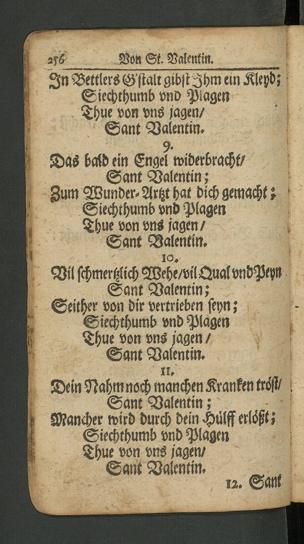 256 Von St. Valentin.
In Bettlers G'stalt gibst Ihm ein Kleyd;
Siechthumb vnd Plagen
Thue von vns jagen/
Sant Valentin.
9.
Das bald ein Engel widerbracht/
Sant Valentin;
Zum Wunder-Artzt hat dich gemacht;
Siechthumb vnd Plagen
Thue von vns jagen/
Sant Valentin.
10.
Vil schmertzlich Wehe/vil Qual vnd Peyn
Sant Valentin;
Seither von dir vertrieben seyn;
Siechthumb vnd Plagen
Thue von vns jagen/
Sant Valentin.
11.
Dein Nahm noch manchen Krancken tröst/
Sant Valentin;
Mancher wird durch dein Hülff erlößt;
Siechthumb vnd Plagen
Thue von vns jagen/
Sant Valentin.
12. Sant